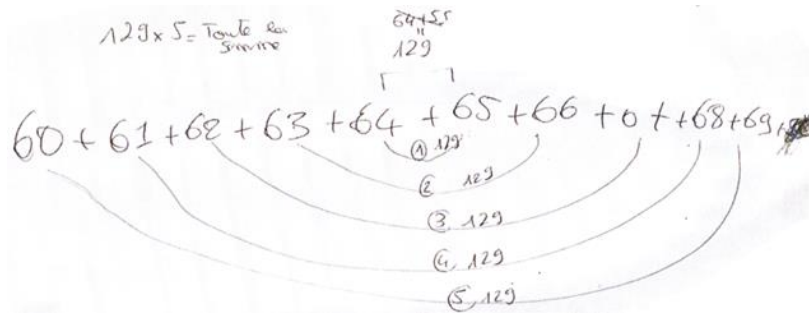 129 x 5 = Toute la somme
64+55
"
129
60 + 61 + 62 + 63 + 64 + 65 + 66 + 0 + + 68 + 69 +
① 129
② 129
③ 129
④ 129
⑤ 129